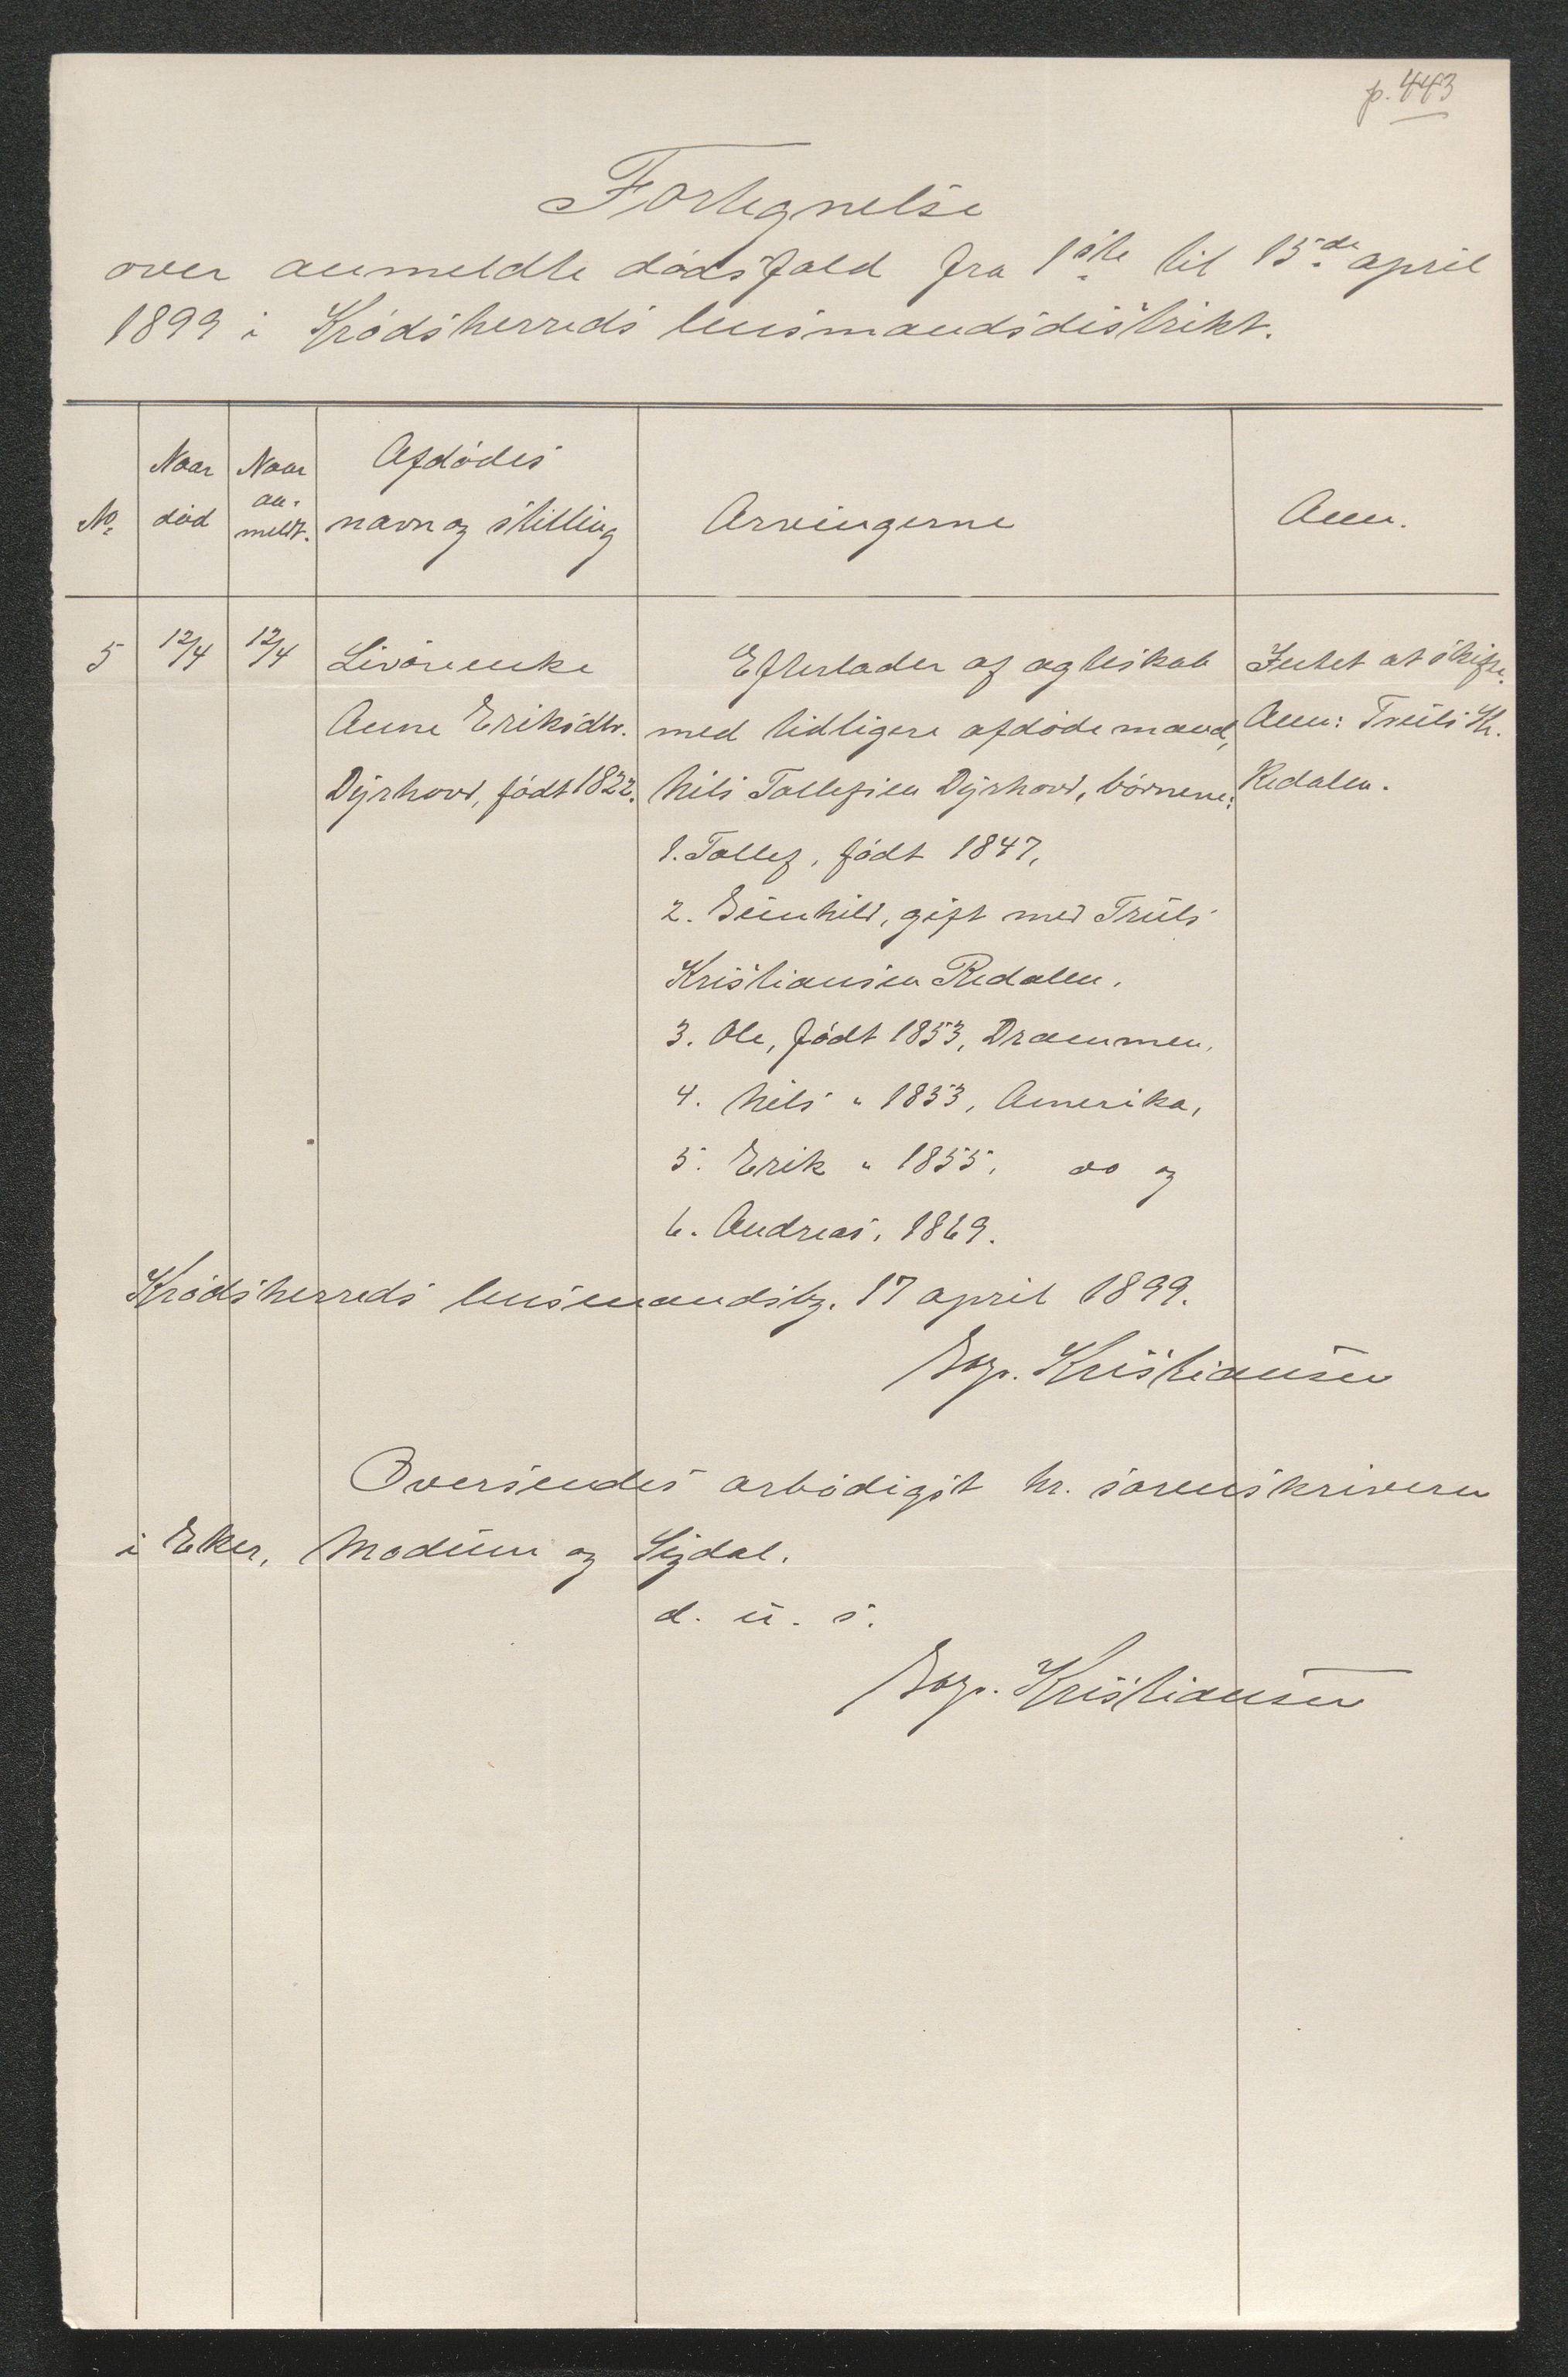 p. 443
Fortegnelse
over anmeldte dødsfald fra 1ste til 15de april
1899 i Krødsherreds lensmandsdistrikt.
No. Naar død Naar an- meldt. Afdødes navn og stilling Arvingerne Anm.
5 12/4 12/4 Livøreenke Efterlader af ægteskab Intet at skifte.
Anne Eriksdtr. med tidligere afdøde mand, Anm: Truls Kr.
Dyrhovd, født 1822. Nils Tollefsen Dyrhovd, børnene: Redalen.
1. Tollef, født 1847,
2. Gunhild, gift med Truls
Kristiansen Redalen.
3. Ole, født 1853, Drammen,
4. Nils " 1853, Amerika,
5. Erik " 1855, do og
6. Andreas, 1869.
Krødsherreds lensmandsbg. 17 april 1899.
Kristiansen
Oversendes ærbødigst hr. sorenskriveren
i Eker, Modum og Sigdal.
d. u. s.
Kristiansen